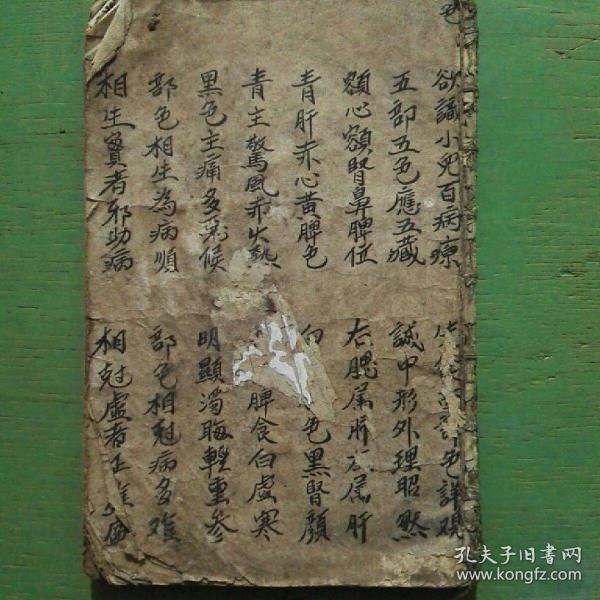 欲識小児百病原 先從面部色詳观
五部五色應五藏 誠中形外理昭然
額心頦腎鼻脾位 右腮属肺左属肝
青肝赤心黃脾色 白 色黑腎顏
青主驚風赤火熱 脾食白虚寒
黑色主痛多惡候 明顯濁晦輕重參
部色相生為病順 部色相尅病多难
相生實者邪助病 相尅虚者正难
孔夫子旧书网
www.kongfz.com